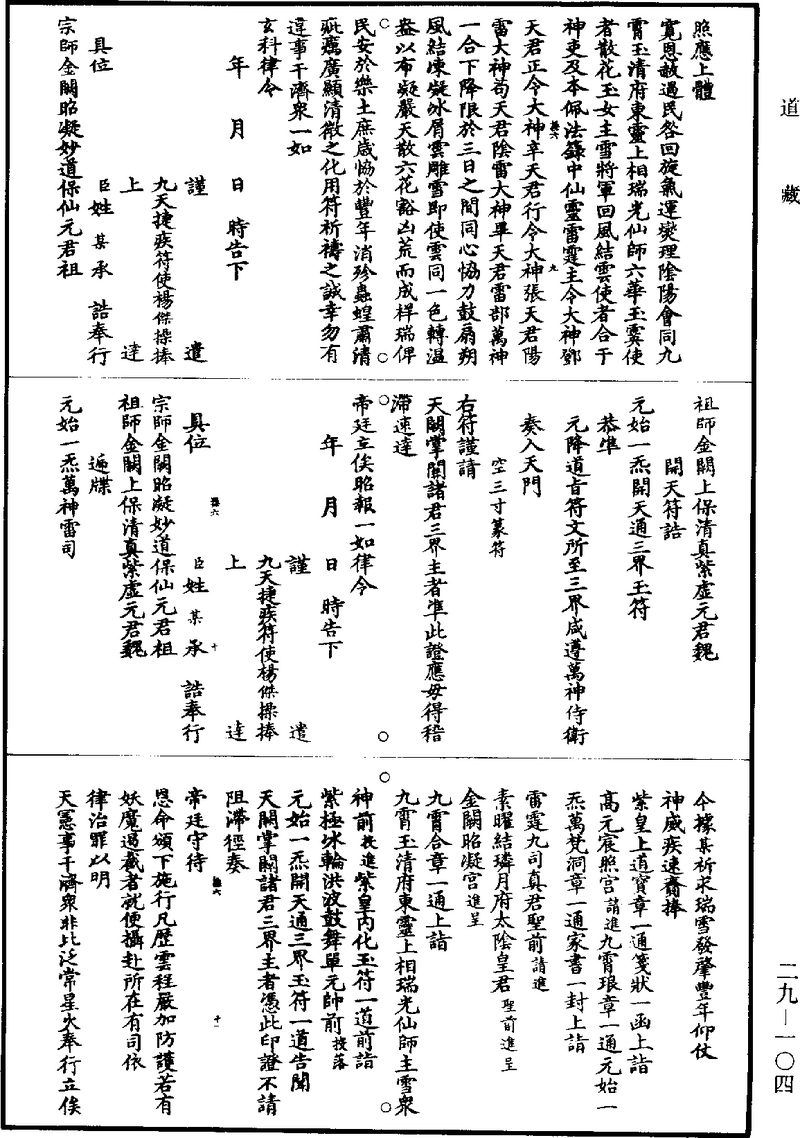 道藏
二九—一〇四
照應上體
寬恩赦過民咎回旋氣運燮理陰陽會同九
霄玉清府東靈上相瑞光仙師六華玉霙使
者散花玉女主雪將軍回風結雲使者合于
神吏及本佩法籙中仙靈雷霆主令大神鄧
天君正令大神辛天君行令大神張天君陽
雷大神苟天君陰雷大神畢天君雷部萬神
一合下降限於三日之間同心恊力鼓扇朔
風結凍凝冰屑雲雕雪即使雲同一色轉温
益以布凝嚴天散六花豁凶荒而成祥瑞俾
民安於樂土庶歲恊於豐年消殄蟲蝗肅清
疵癘廣顯清微之化用符祈禱之誠幸勿有
違事干濟衆一如
玄科律令
年 月 日 時告下
謹 遣
九天捷疾符使楊傑操捧
上 達
具位 臣姓某承 誥奉行
宗師金闕昭凝妙道保仙元君祖
祖師金闕上保清真紫虛元君魏
開天符誥
元始一炁開天通三界玉符
恭准
元降道旨符文所至三界咸遵萬神侍衛
奏入天門
空三寸篆符
右符謹請
天關掌關諸君三界主者准此證應毋得稽
滯速達
帝廷立俟昭報一如律令
年 月 日 時告下
謹 遣
九天捷疾符使楊傑操捧
上 達
具位 臣姓某承 誥奉行
宗師金闕昭凝妙道保仙元君祖
祖師金闕上保清真紫虛元君魏
遍牒
元始一炁萬神雷司
今據某祈求瑞雪發肇豐年仰仗
神威疾速賫捧
紫皇上道寶章一通箋狀一函上詣
高元宸照宫請進九霄琅章一通元始一
炁萬梵洞章一通家書一封上詣
雷霆九司真君聖前請進
素曜結璘月府太陰皇君聖前進呈
金闕昭凝宫進呈
九霄合章一通上詣
九霄玉清府東靈上相瑞光仙師主雪衆
神前投進紫皇内化玉符一道前詣
紫極冰輪洪波鼓舞單元帥前投落
元始一炁開天通三界玉符一道告聞
天關掌關諸君三界主者憑此印證不請
阻滯徑奏
帝廷守待
恩命頒下施行凡歷雲程嚴加防護若有
妖魔遏截者就便攝赴所在有司依
律治罪以明
天憲事干濟衆非比泛常星火奉行立俟